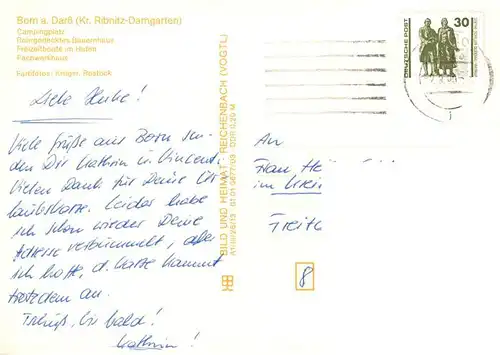 Born a. Darß (Kr. Ribnitz-Damgarten)
Campingplatz
Rohrgedecktes Bauernhaus
Freizeitboote im Hafen
Fachwerkhaus
Farbfotos: Kruger, Rostock
Liebe Heike!
Viele Grüße aus Born sen-
den Dir Kathrin u. Vincent.
Vielen Dank für Deine Ur-
laubskarte. Leider habe
ich schon wieder Deine
Adresse verbummelt, aber
ich hoffe, d. Karte kommt
trotzdem an.
Tschüß, bis bald!
Kathrin!
BILD UND HEIMAT REICHENBACH (VOGTL)
A1/III/26/13 01 01 0677/09 DDR 0,20 M
DEUTSCHE POST
30
An
Frau He
im
Freita
8